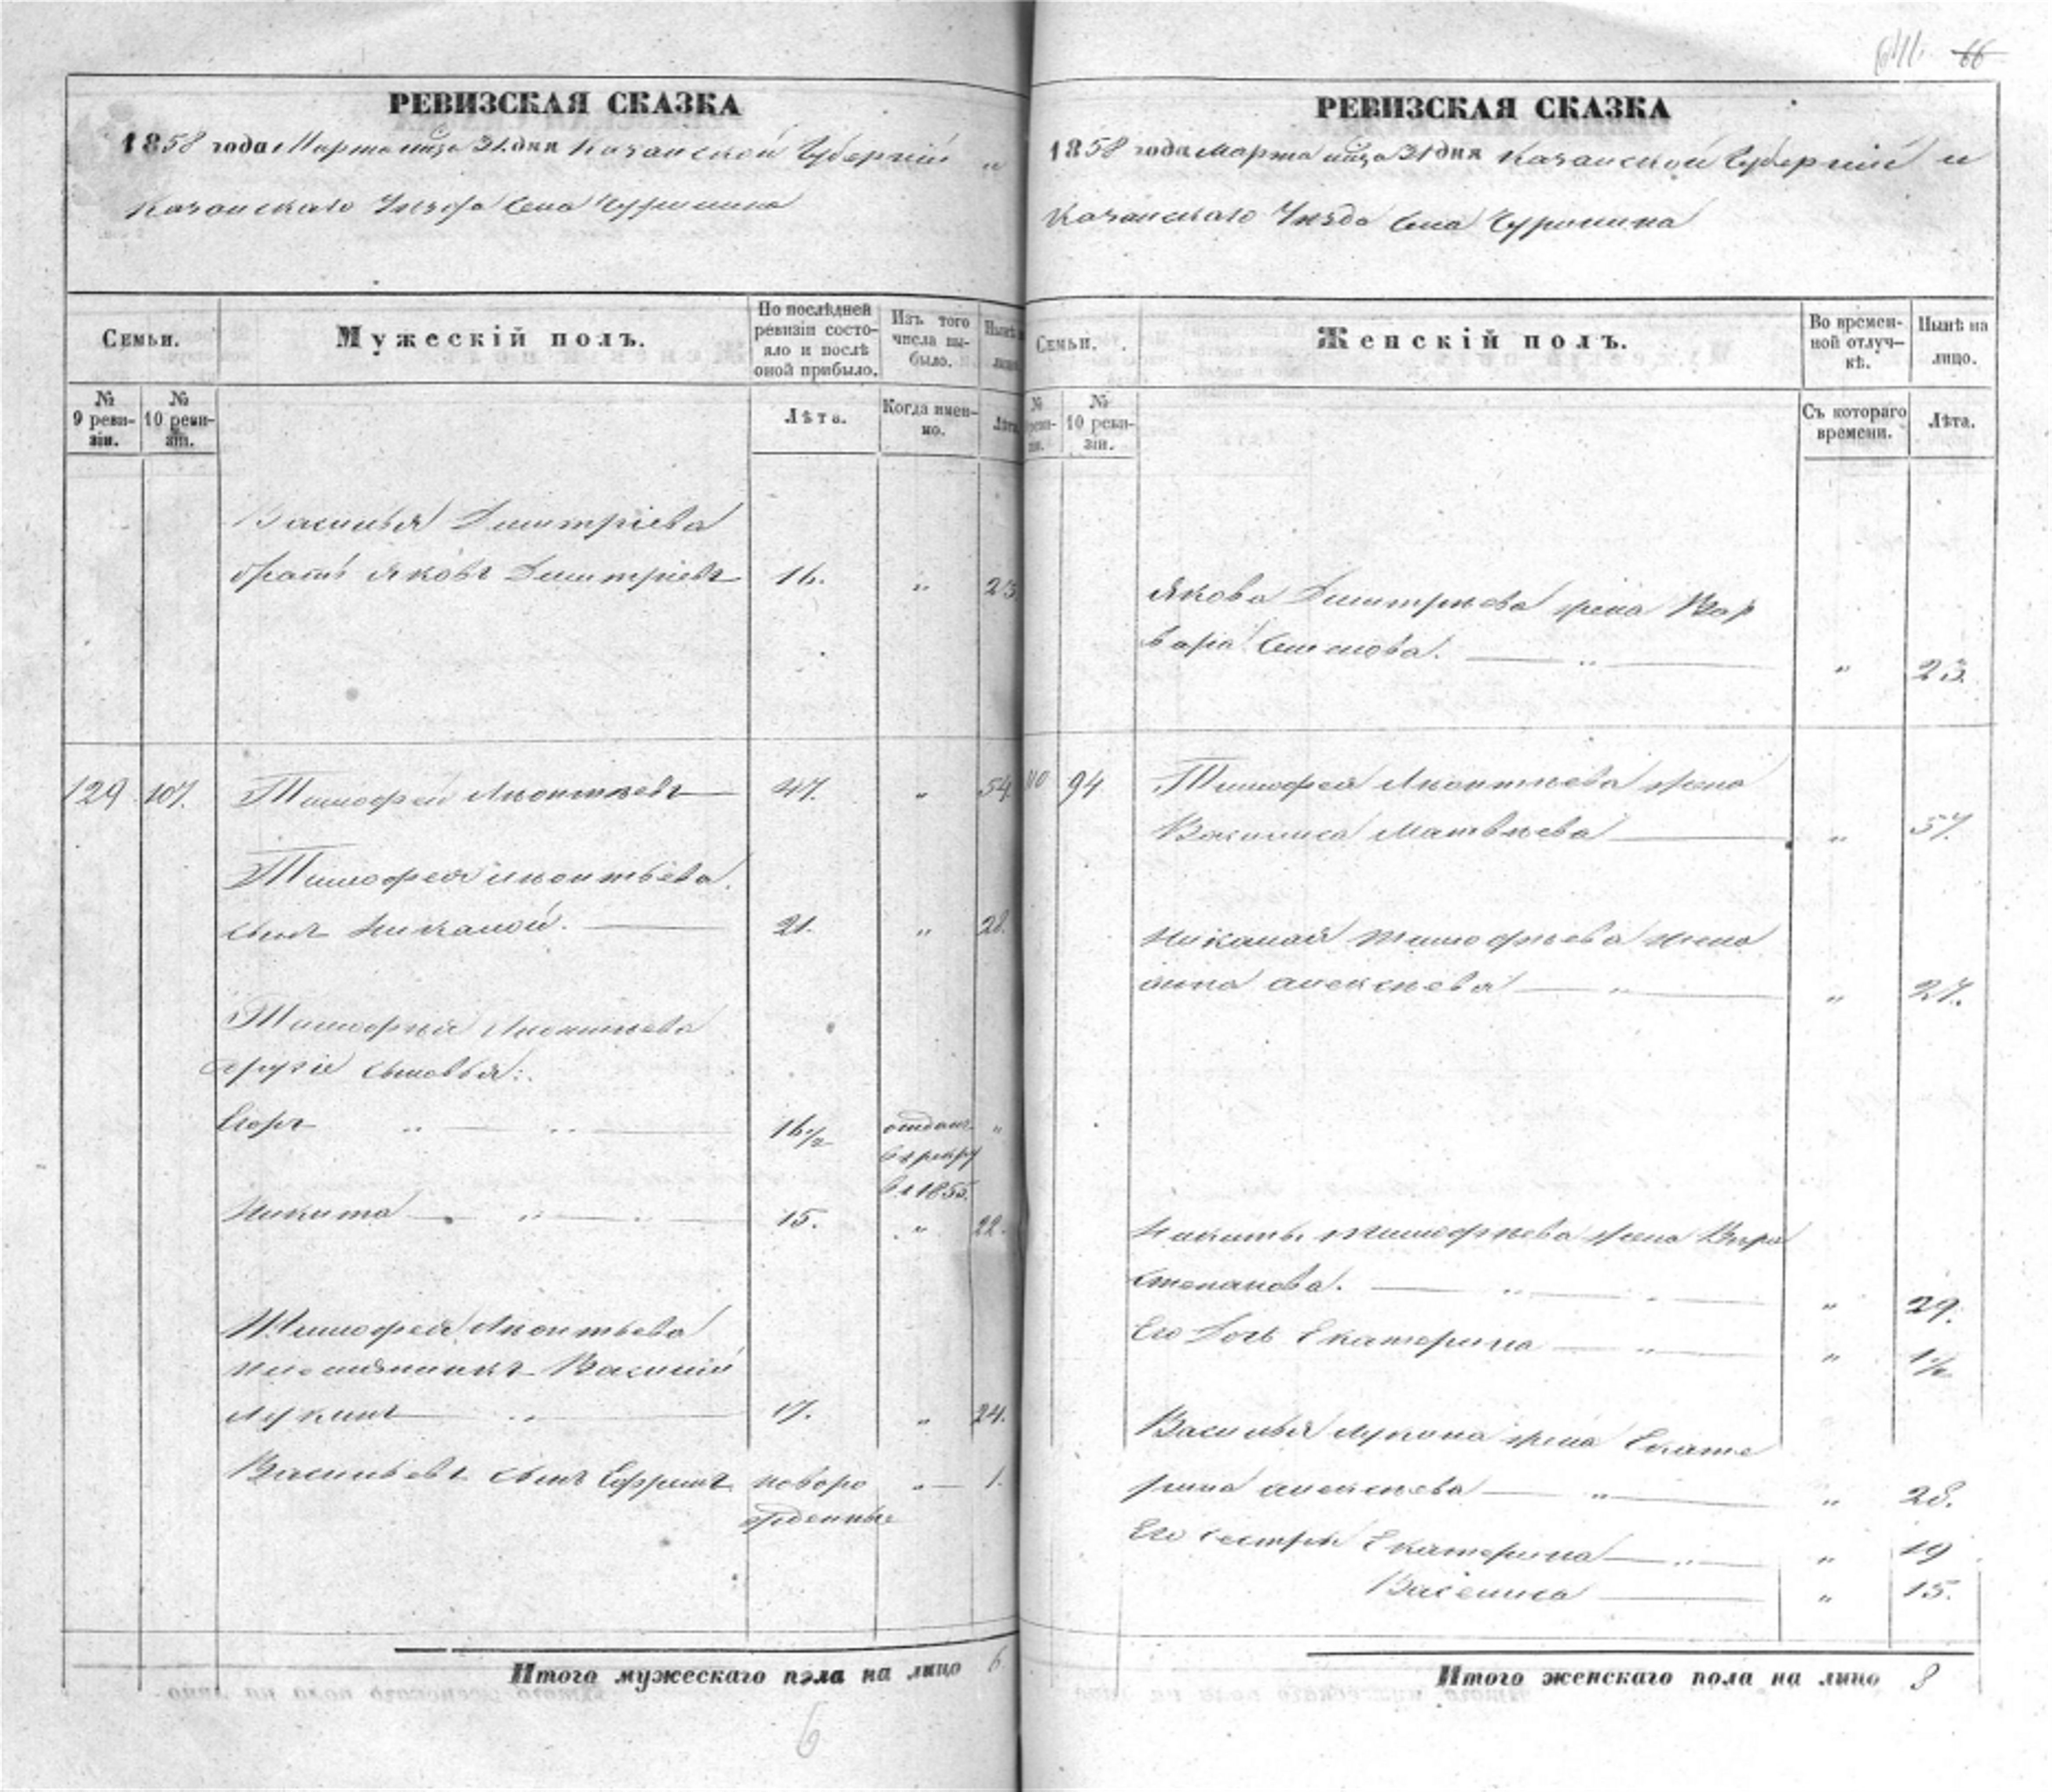 66
РЕВИЗСКАЯ СКАЗКА
1858 года Марта мца 31 дня Казанской Губерніи и
Казанскаго Уезда Села Чурилина
Семьи.
Мужескій полъ.
По послѣдней ревизіи состояло и послѣ оной прибыло.
Изъ того числа выбыло.
Нынѣ
лицо
№ 9 ревизіи.
№ 10 ревизіи.
Лѣта.
Когда именно.
Лѣта
Василья Дмитріева
братъ Яковъ Дмитріевъ 16. „ 23
129 107. Тимофей Леонтьевъ 47. „ 54
Тимофея Леонтьева
сынъ Николай. 21. „ 28.
Тимофея Леонтьева
другіе сыновья:
Егоръ 16½ отданъ „
въ рекру
въ 1855.
Никита 15. „ 22.
Тимофея Леонтьева
племянникъ Василій
Лукинъ 17. „ 24.
Васильевъ сынъ Ефремъ новоро „ 1.
жденные
Итого мужескаго пола на лицо 6
6
РЕВИЗСКАЯ СКАЗКА
1858 года Марта мца 31 дня Казанской Губерніи и
Казанскаго Уезда Села Чурилина
Семьи.
Женскій полъ.
Во временной отлучкѣ.
Нынѣ на лицо.
№ 10 ревизіи.
Съ котораго времени.
Лѣта.
Якова Дмитрьева жена Вар
вара Семенова. „ 23.
94 Тимофея Леонтьева жена
Василиса Матвѣева „ 57.
Николая Тимофѣева жена
Анна Алексѣева „ 27.
Никиты Тимофѣева жена Вѣра
Степанова. „ 29.
Его Дочь Екатерина „ 1½
Василья Лукина жена Екате
рина Алексѣева „ 28.
Его сестры Екатерина „ 19
Василиса „ 15.
Итого женскаго пола на лицо 8